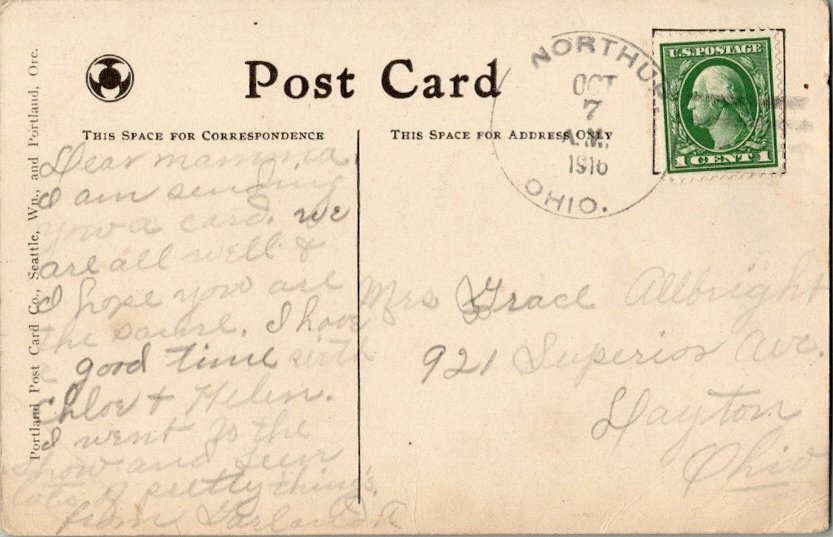 Post Card
THIS SPACE FOR CORRESPONDENCE
THIS SPACE FOR ADDRESS ONLY
Portland Post Card Co., Seattle, Wn., and Portland, Ore.
OCT
7
A.M.
1916
OHIO.
U.S. POSTAGE
1 CENT 1
Dear mamma.
I am sending
you a card. we
are all well &
I hope you are
the same. I have
a good time with
Chloe & Helen.
I went to the
show and seen
lots of pretty things.
from Garland
Mrs Grace Allbright
921 Superior Ave.
Dayton
Ohio